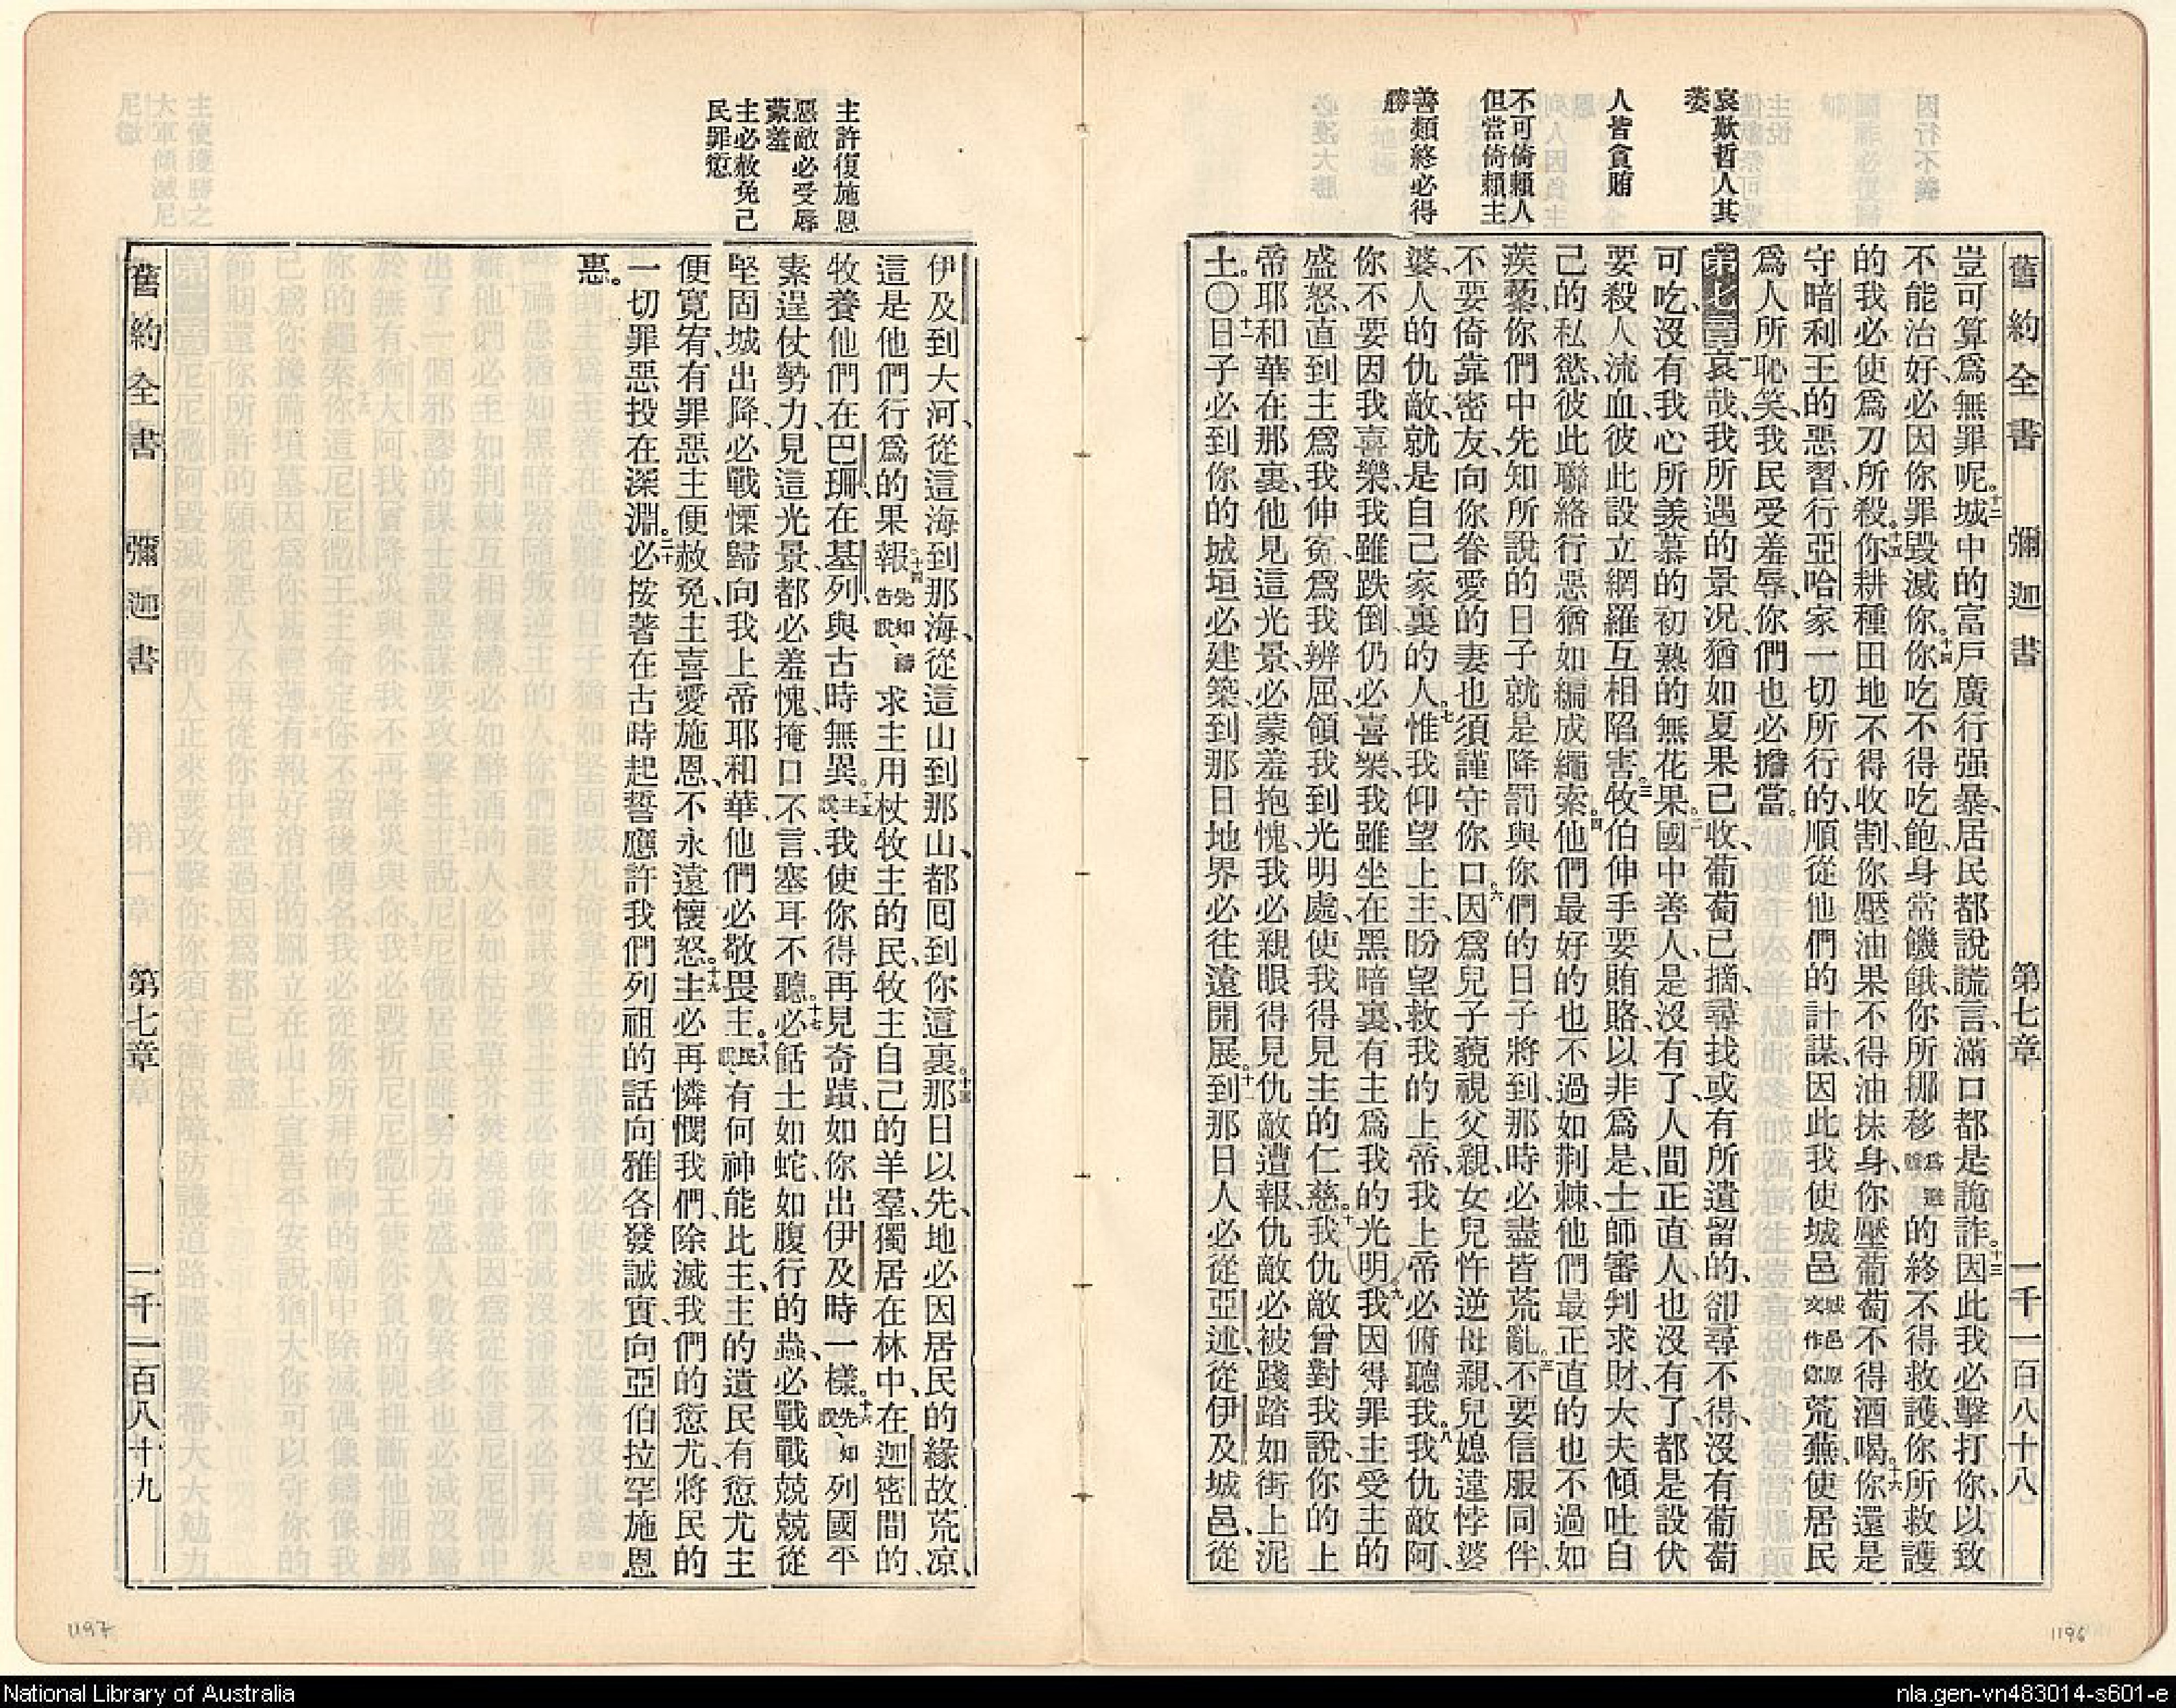 舊約全書 彌迦書 第七章 一千一百八十八
哀歎哲人其萎
人皆貪賄
不可倚賴人但當倚賴主
善類終必得勝
豈可算爲無罪呢。十二城中的富戶廣行强暴、居民都說謊言、滿口都是詭詐。十三因此我必擊打你、以致
不能治好、必因你罪毀滅你。十四你吃不得吃飽、身常饑餓、你所挪移的終不得救護、你所救護
的我必使爲刀所殺。十五你耕種田地不得收割、你壓油果不得油抹身、你壓葡萄不得酒喝。十六你還是
守暗利王的惡習、行亞哈家一切所行的、順從他們的計謀、因此我使城邑城邑原文作你荒蕪、使居民
爲人所恥笑、我民受羞辱、你們也必擔當。
第七章一哀哉、我所遇的景況、猶如夏果已收、葡萄已摘、尋找或有所遺留的、卻尋不得、沒有葡萄
可吃、沒有我心所羨慕的初熟的無花果。二國中善人、是沒有了、人間正直人、也沒有了、都是設伏
要殺人流血、彼此設立網羅互相陷害。三牧伯伸手要賄賂、以非爲是、士師審判求財、大夫傾吐自
己的私慾、彼此聯絡行惡猶如編成繩索。四他們最好的也不過如荆棘、他們最正直的也不過如
蒺藜、你們中先知所說的日子、就是降罰與你們的日子將到、那時必盡皆荒亂。五不要信服同伴、
不要倚靠密友、向你眷愛的妻也須謹守你口。六因爲兒子藐視父親、女兒忤逆母親、兒媳違悖婆
婆、人的仇敵、就是自己家裏的人。七惟我仰望上主、盼望救我的上帝、我上帝必俯聽我。八我仇敵阿、
你不要因我喜樂、我雖跌倒、仍必喜樂、我雖坐在黑暗裏、有主爲我的光明。九我因得罪主受主的
盛怒、直到主爲我伸寃、爲我辨屈、領我到光明處、使我得見主的仁慈。十我仇敵曾對我說、你的上
帝耶和華在那裏、他見這光景、必蒙羞抱愧、我必親眼得見仇敵遭報、仇敵必被踐踏如街上泥
土。〇十一日子必到、你的城垣必建築、到那日地界必往遠開展。十二到那日人必從亞述、從伊及城邑、從
1196
主許復施恩
惡敵必受辱蒙羞
主必赦免己民罪愆
伊及到大河、從這海到那海、從這山到那山、都囘到你這裏。十三那日以先、地必因居民的緣故荒凉、
這是他們行爲的果報。十四先知禱告說、求主用杖牧主的民、牧主自己的羊羣、獨居在林中、在迦密間的、
牧養他們在巴珊、在基列、與古時無異。十五主說、我使你得再見奇蹟、如你出伊及時一樣。十六先知說、列國平
素逞仗勢力、見這光景、都必羞愧、掩口不言、塞耳不聽。十七必餂土如蛇、如腹行的蟲、必戰戰兢兢從
堅固城出降、必戰慄歸向我上帝耶和華、他們必敬畏主。十八民說、有何神能比主、主的遺民有愆尤、主
便寛宥、有罪惡、主便赦免、主喜愛施恩、不永遠懷怒。十九主必再憐憫我們、除滅我們的愆尤、將民的
一切罪惡投在深淵。二十必按著在古時起誓應許我們列祖的話、向雅各發誠實、向亞伯拉罕施恩
惠。
舊約全書 彌迦書 第七章 一千一百八十九
1197
National Library of Australia
nla.gen-vn483014-s601-e